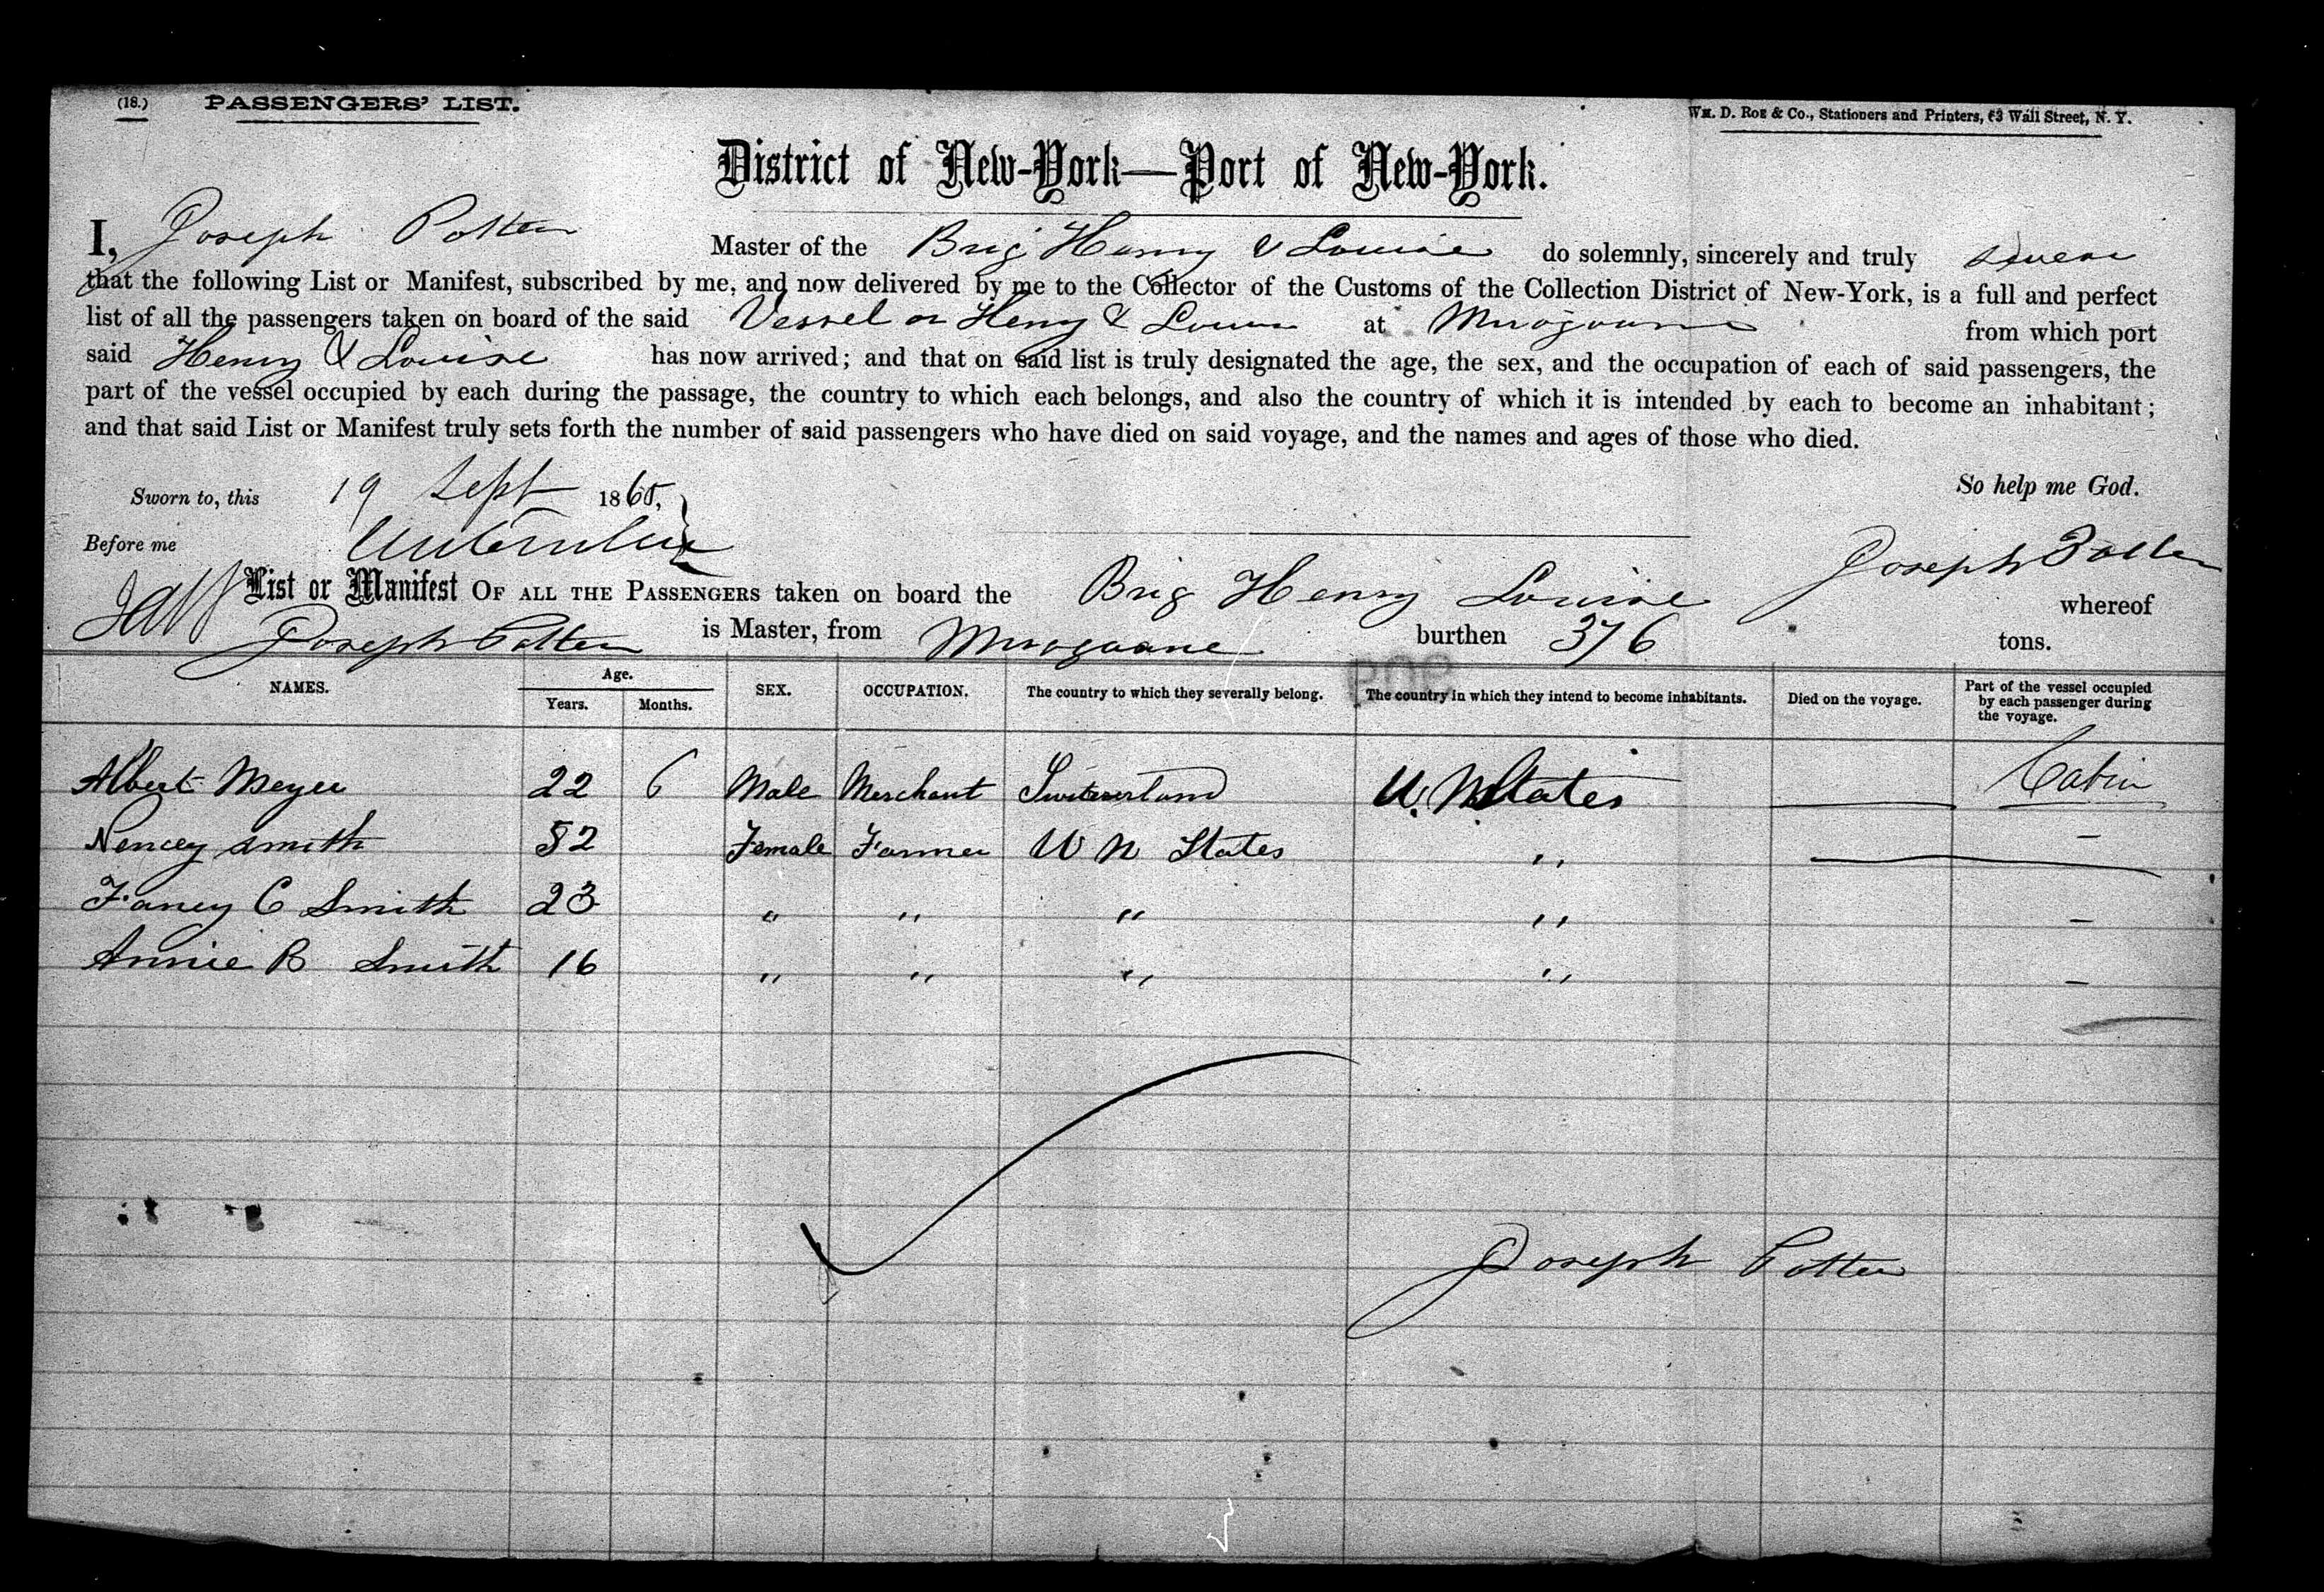 (18.) PASSENGERS' LIST. Wm. D. Roe & Co., Stationers and Printers, 63 Wall Street, N. Y.
District of New-York—Port of New-York.
I, Joseph Potter Master of the Brig Henry & Louise do solemnly, sincerely and truly swear
that the following List or Manifest, subscribed by me, and now delivered by me to the Collector of the Customs of the Collection District of New-York, is a full and perfect
list of all the passengers taken on board of the said Vessel or Henry & Louise at from which port
said Henry & Louise has now arrived; and that on said list is truly designated the age, the sex, and the occupation of each of said passengers, the
part of the vessel occupied by each during the passage, the country to which each belongs, and also the country of which it is intended by each to become an inhabitant;
and that said List or Manifest truly sets forth the number of said passengers who have died on said voyage, and the names and ages of those who died.
Sworn to, this 19 Sept 1865, So help me God.
Before me
Joseph Potter
List or Manifest OF ALL THE PASSENGERS taken on board the Brig Henry Louise whereof
Joseph Potter is Master, from Miragoane burthen 376 tons.
NAMES. Age. SEX. OCCUPATION. The country to which they severally belong. The country in which they intend to become inhabitants. Died on the voyage. Part of the vessel occupied by each passenger during the voyage.
Years. Months.
Albert Meyer 22 6 Male Merchant Switzerland U. N States Cabin
Nencey Smith 52 Female Farmer U N States ,, –
Faney C Smith 23 " " " ,, –
Annie B Smith 16 " " " ,, –
Joseph Potter